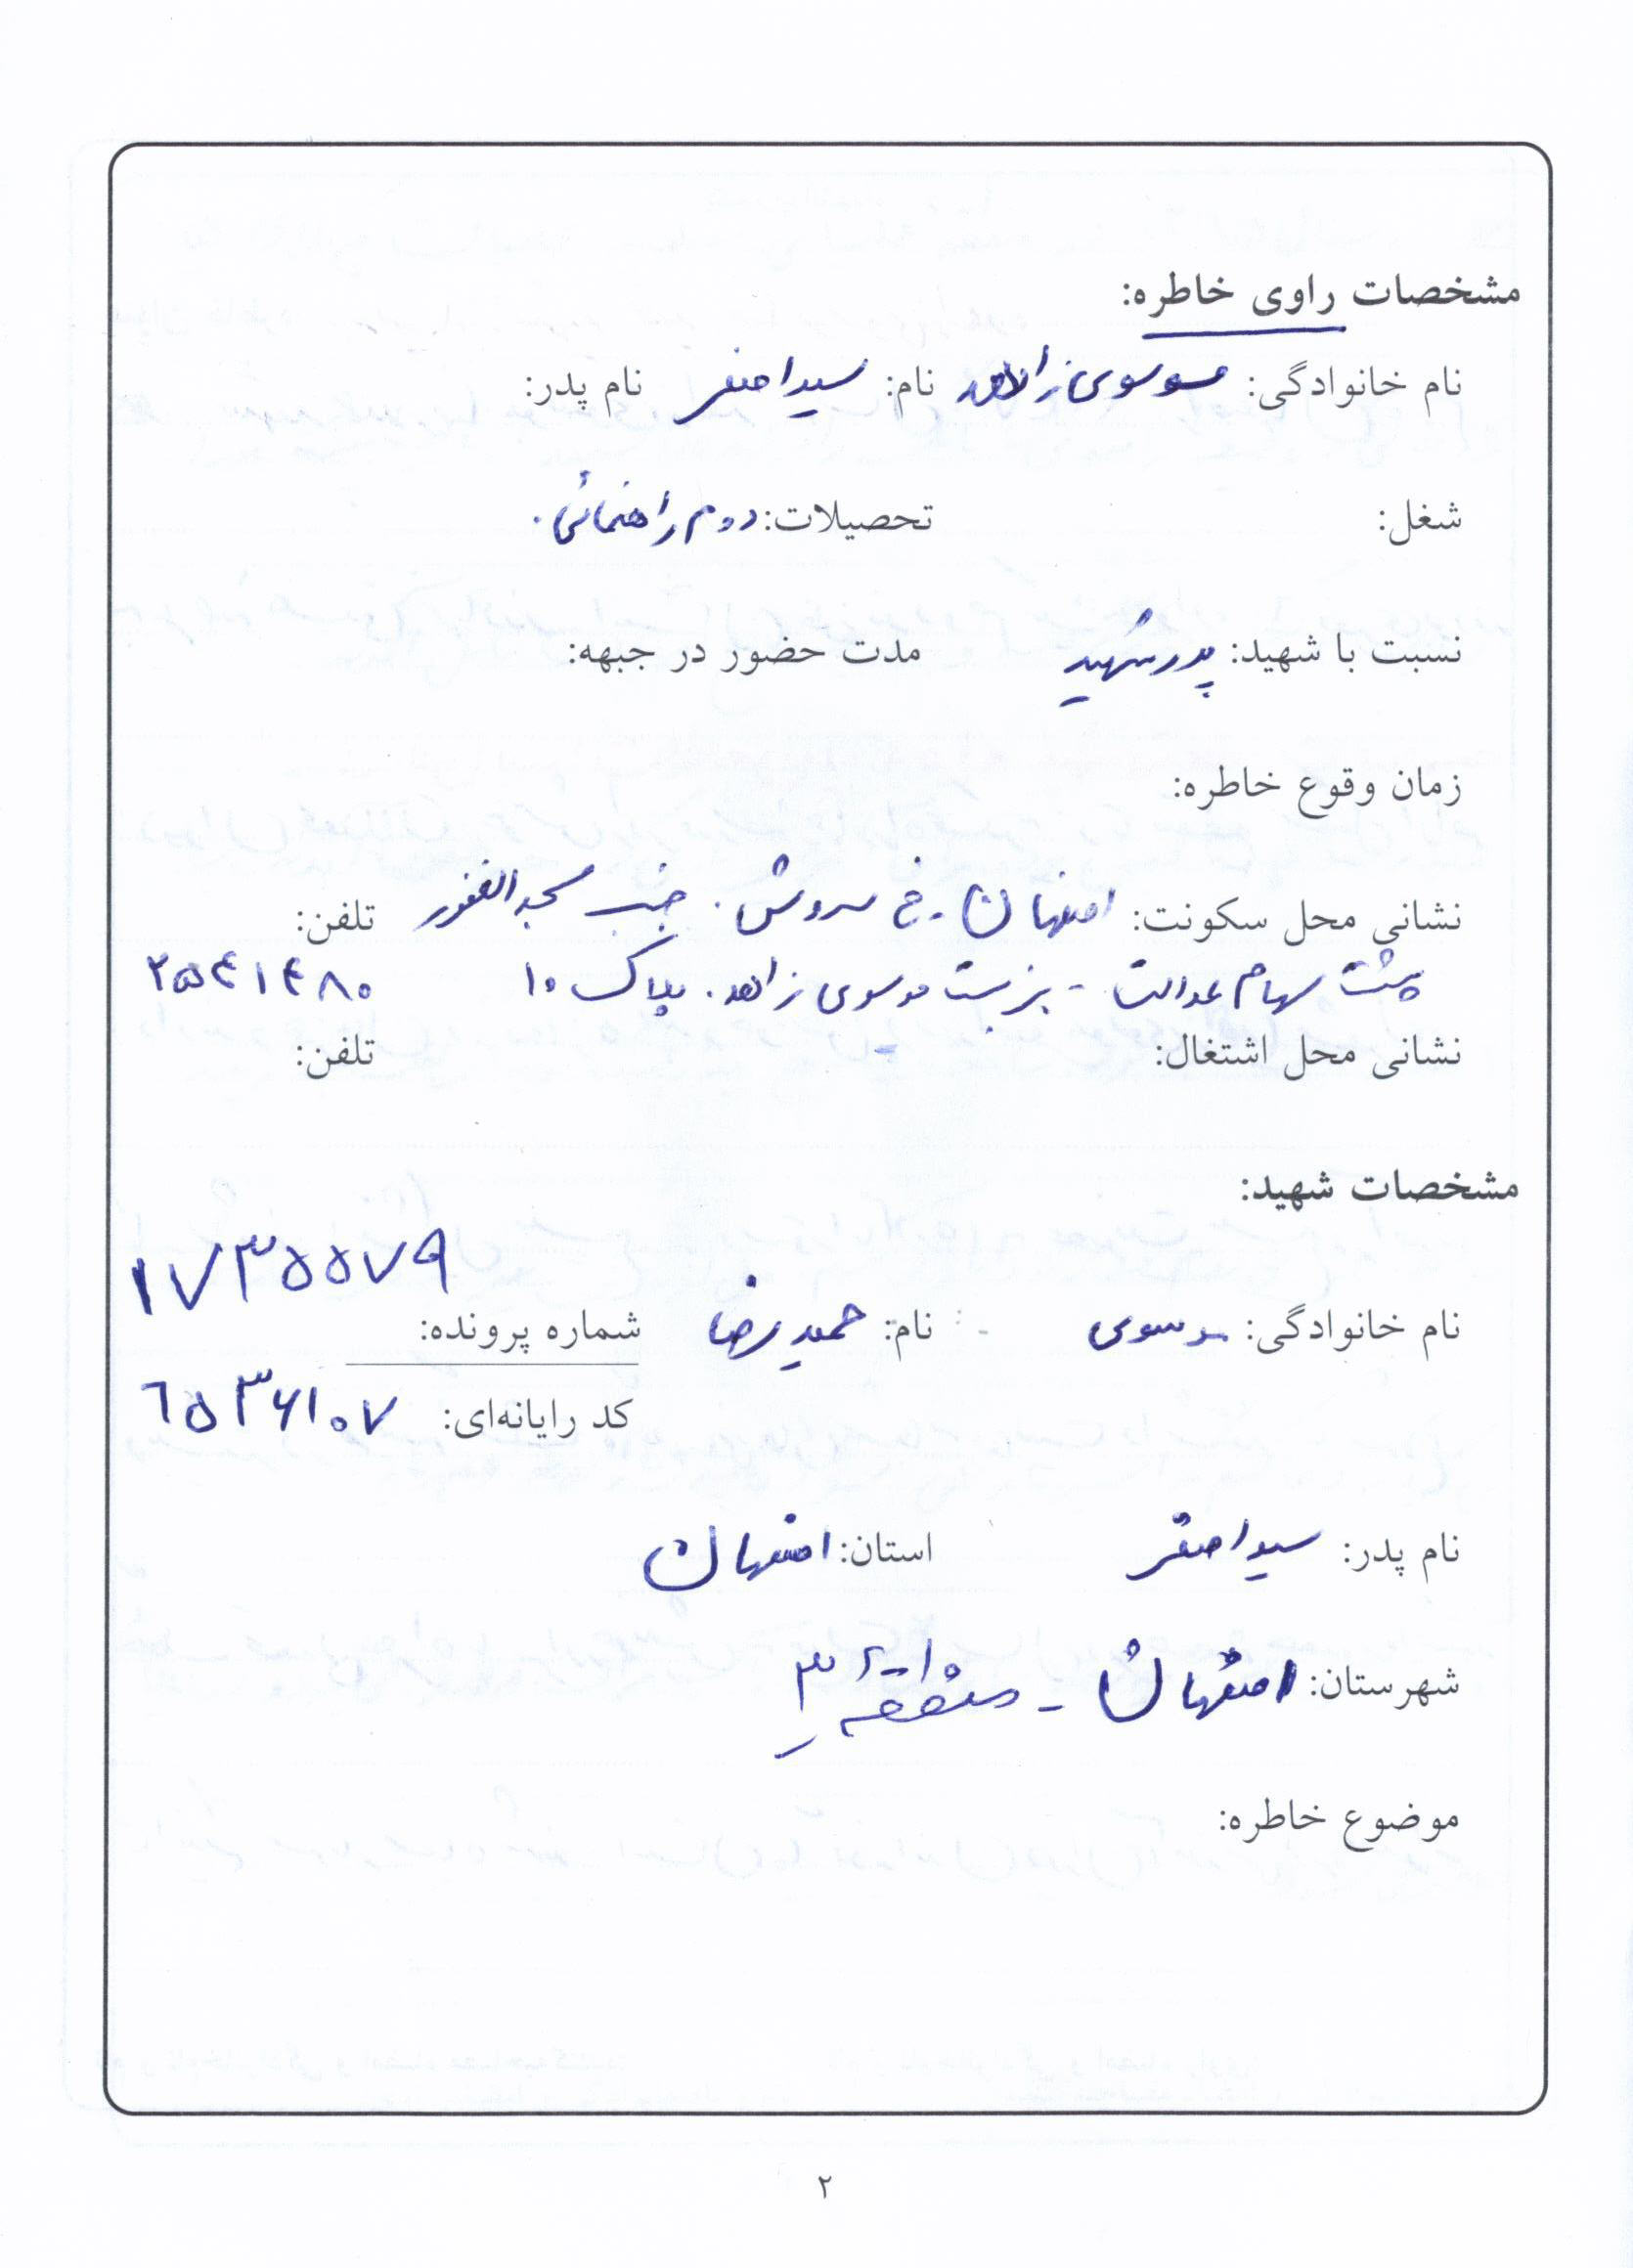 مشخصات راوی خاطره:
نام خانوادگی: موسوی زاهد نام: سیداصغر نام پدر:
شغل: تحصیلات: دوم راهنمائی.
نسبت با شهید: پدر شهید مدت حضور در جبهه:
زمان وقوع خاطره:
نشانی محل سکونت: اصفهان - خ سروش. جنب مسجد الغفور تلفن:
پشت سهام عدالت - بن بست موسوی زاهد. پلاک ۱۰ ۲۵۴۱۴۸۰
نشانی محل اشتغال: تلفن:
مشخصات شهید:
۱۷۳۵۵۷۹
نام خانوادگی: موسوی نام: حمیدرضا شماره پرونده:
کد رایانه‌ای: ۶۵۳۶۱۰۷
نام پدر: سیداصغر استان: اصفهان
شهرستان: اصفهان - منطقه ۳
موضوع خاطره:
۲